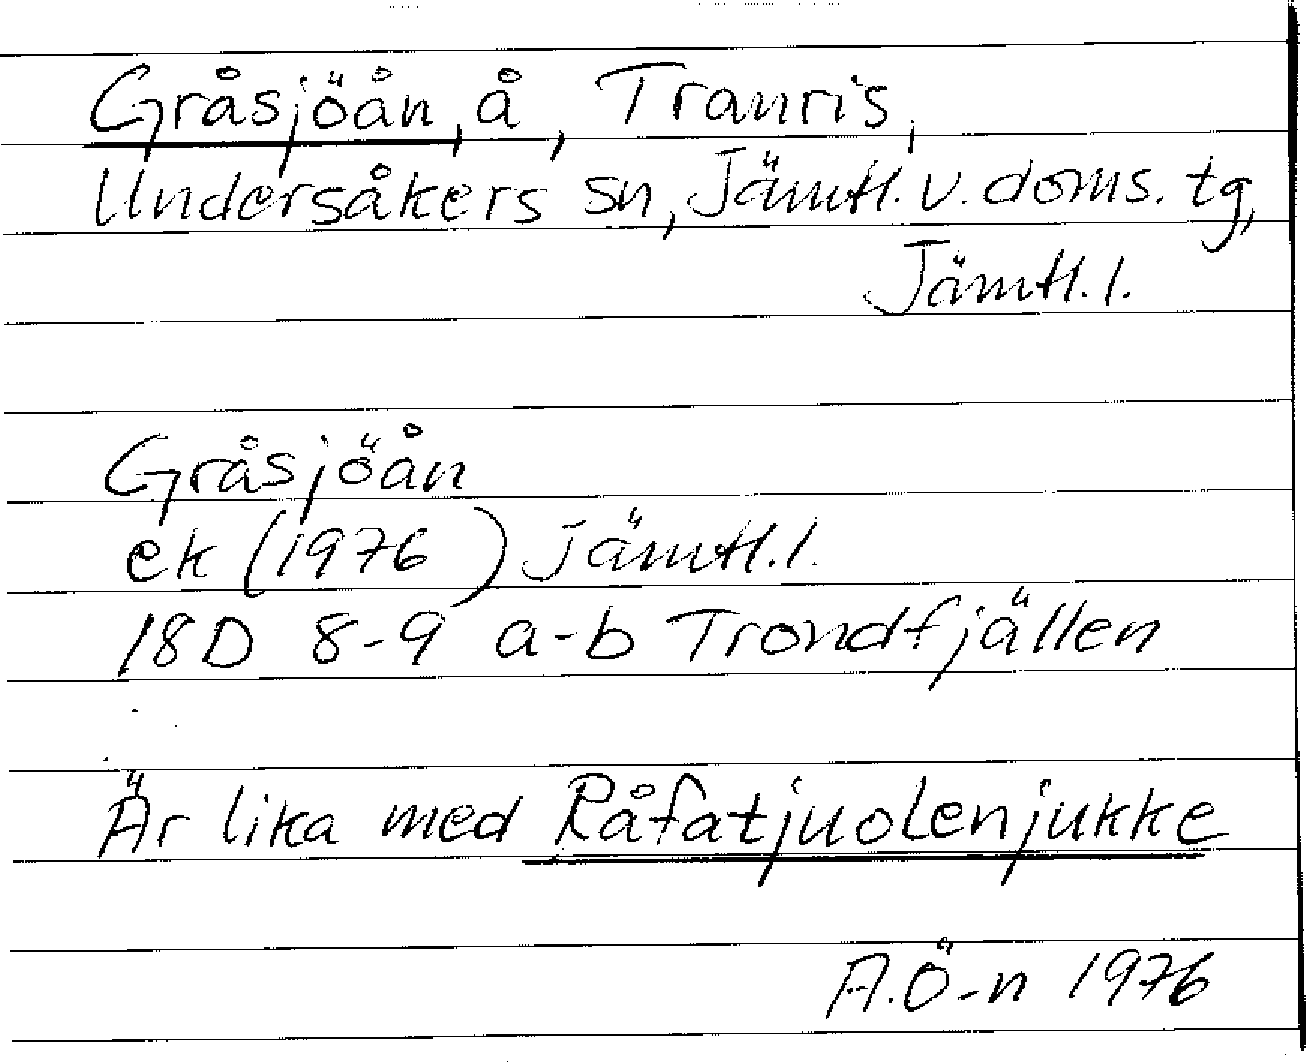 Gråsjöån, å, Tranris,
Undersåkers sn, Jämtl. v. doms. tg,
Jämtl. l.
Gråsjöån
ek (1976) Jämtl. l.
18D 8-9 a-b Trondfjällen
Är lika med Råfatjuolenjukke
A.Ö-n 1976